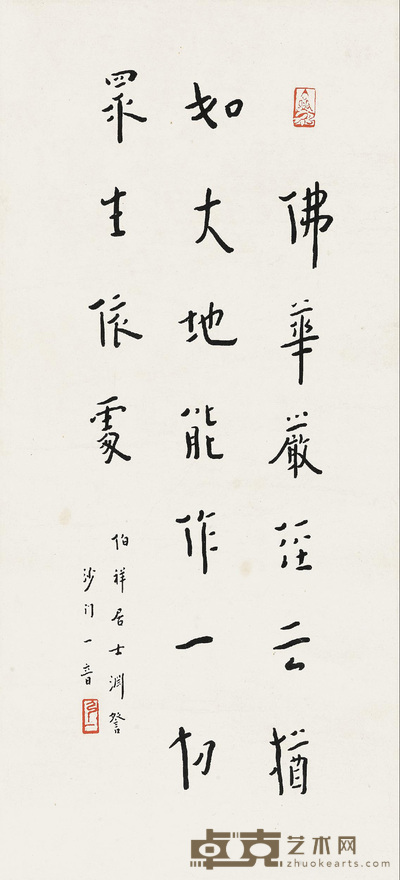 佛華嚴經云猶
如大地能作一切
眾生依處
伯祥居士淵詧
沙门一音
卓克艺术网
zhuokearts.com